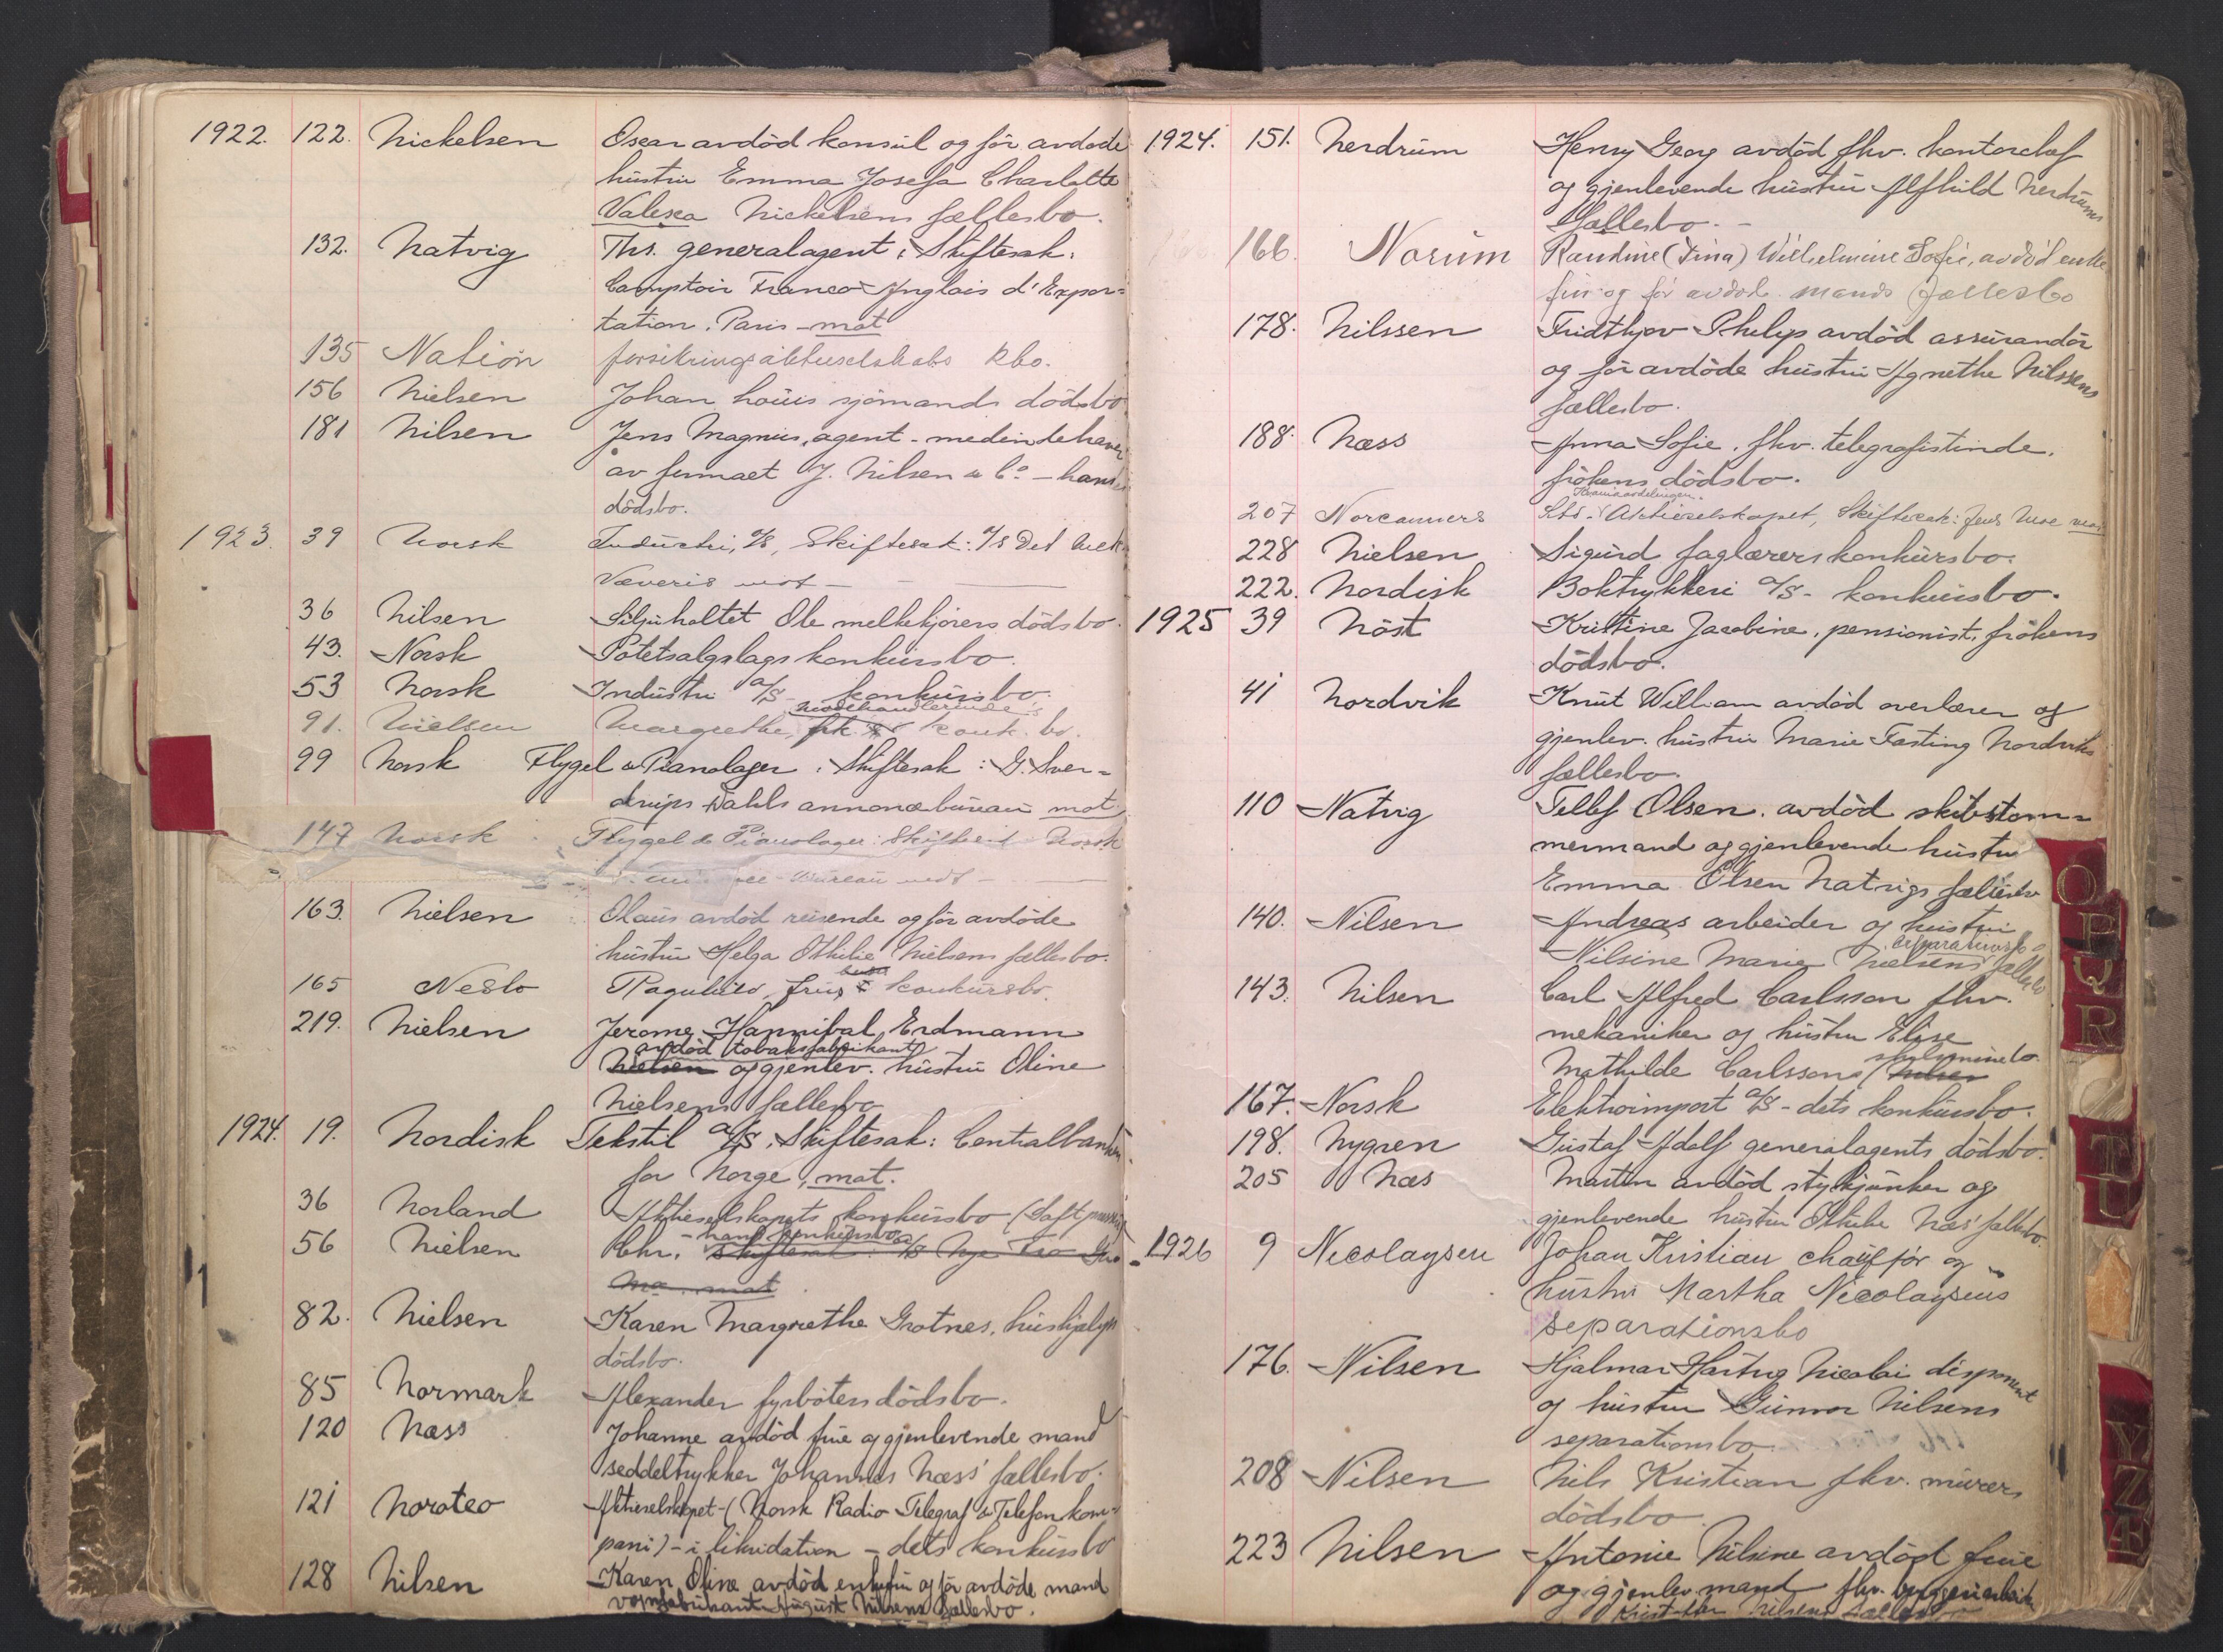 1922. 122. Nickelsen Oscar avdöd konsul og för avdöde
hustru Emma Josefa Charlotte
Valesca Nickelsens fællesbo.
132. Natvig Ths. generalagent; Skiftesak:
Comptoir Franco-Anglais d'Expor=
tation. Paris - mot
135 Nation forsikringsaktieselskabs kbo.
156 Nielsen Johan sjömands dödsbo
181 Nilsen Jens Magnus, agent - medindehaver
av firmaet J. Nilsen & Co - hans
dödsbo.
1923. 39 Norsk Industri, A/S, Skiftesak: A/S Det
Væveris mot -
36 Nilsen Siljuholtet Ole melkekjörers dödsbo.
43. Norsk Potetsalgslags konkursbo.
53 Norsk Industri A/S - konkursbo.
modehandlerinde's
91. Nielsen Margrethe, frk. konk. bo.
99 Norsk Flygel & Pianolager: Skiftesak: G. Sver=
drups Dahls annoncebureau mot
147 Norsk Flygel & Pianolager: Skiftesak Norsk
Bureau mot -
163. Nielsen Olaus avdöd reisende og för avdöde
hustru Helga Othilie Nielsens fællesbo.
165 Neslo Ragnhild, frues konkursbo.
219. Nielsen Jerome Hannibal Erdmann
avdöd tobaksfabrikant
Nielsen og gjenlev. hustru Oline
Nielsens fællesbo
1924. 19. Nordisk Tekstil A/S. Skiftesak: Centralbanken
for Norge, mot.
36 Norland Aktieselskapets konkursbo
- hans konkursbo
56 Nielsen Chr. Skiftesak: A/S Nye
mot
82. Nielsen Karen Margrethe Grotnes, hushjælps
dödsbo.
85 Normark Alexander fyrböters dödsbo.
120 Næss Johanne avdöd frue og gjenlevende mand
seddeltrykker Johannes Næss' fællesbo.
121 Norateo Aktieselskapet - (Norsk Radio Telegraf & Telefon kom=
pani) - i likvidation - dets konkursbo
128 Nilsen Karen Oline avdöd enkefru og för avdöde mand
vognfabrikant August Nilsens fællesbo.
1924. 151. Nerdrum Henry Georg avdöd fhv. kontorchef
og gjenlevende hustru Alfhild Nerdrums
fællesbo. -
166. Norum Randine (Dina) Wilhelmine Sofie, avdöd enke
frue og för avdöd. mands fællesbo
178. Nilssen Fridthjov Philip avdöd assurandör
og för avdöde hustru Agnethe Nilssens
fællesbo.
188. Næss Anna Sofie, fhv. telegrafistinde,
frökens dödsbo.
207 Norcanners Ltd. Aktieselskapet, Skiftesak: Jens mot
228 Nielsen Sigurd faglærers konkursbo.
222. Nordisk Boktrykkeri A/S - konkursbo.
1925 39 Nöst Kristine Jacobine, pensionist, frökens
dödsbo.
41 Nordvik Knut William avdöd overlærer og
gjenlev. hustru Marie Fasting Nordviks
fællesbo.
110 Natvig Tellef Olsen, avdöd skibstöm=
mermand og gjenlevende hustru
Emma Olsen Natvigs fællesbo
140. Nilsen Andreas arbeider og hustru
separationsbo
Nilsine Marie Nielsens fællesbo
143. Nilsen Carl Alfred Carlsson fhv.
mekaniker og hustru Elise
skilsmissebo
Mathilde Carlssons Nilsen
167. Norsk Elektroimport A/S - dets konkursbo.
198. Nygren Gustaf Adolf generalagents dödsbo.
205 Næs Martin avdöd stykjunker og
gjenlevende hustru Othilie Næs' fællesbo.
1926 9 Nicolaysen Johan Kristian chaufför og
hustru Martha Nicolaysens
separationsbo
176. Nilsen Hjalmar Hartvig Nicolai disponent
og hustru Gunvor Nilsens
separationsbo
208 Nilsen Nils Kristian fhv. murers
dödsbo
223 Nilsen Antonie Nilsine avdöd frue
og gjenlev. mand fhv. bryggeriarbeider
Kristoffer Nilsens fællesbo
O
P
Q
R
T
U
Y
Z
Æ